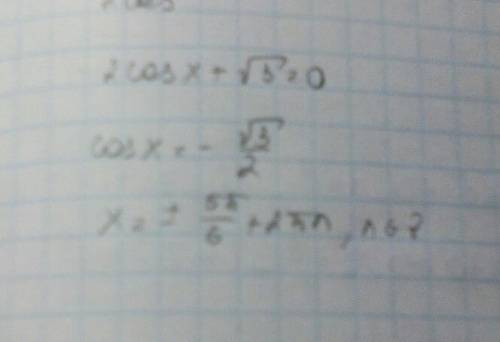 2cosx + √3 = 0
cosx = - √3/2
x = ± 5π/6 + 2πn, n∈Z